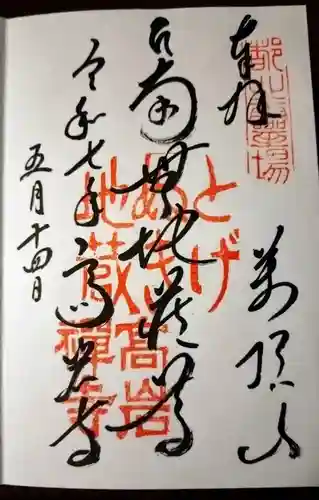 奉拝
萬頂山
南無地蔵尊
令和七年 高岩寺
五月十四日
とげ
ぬき
地蔵
高岩
禪寺